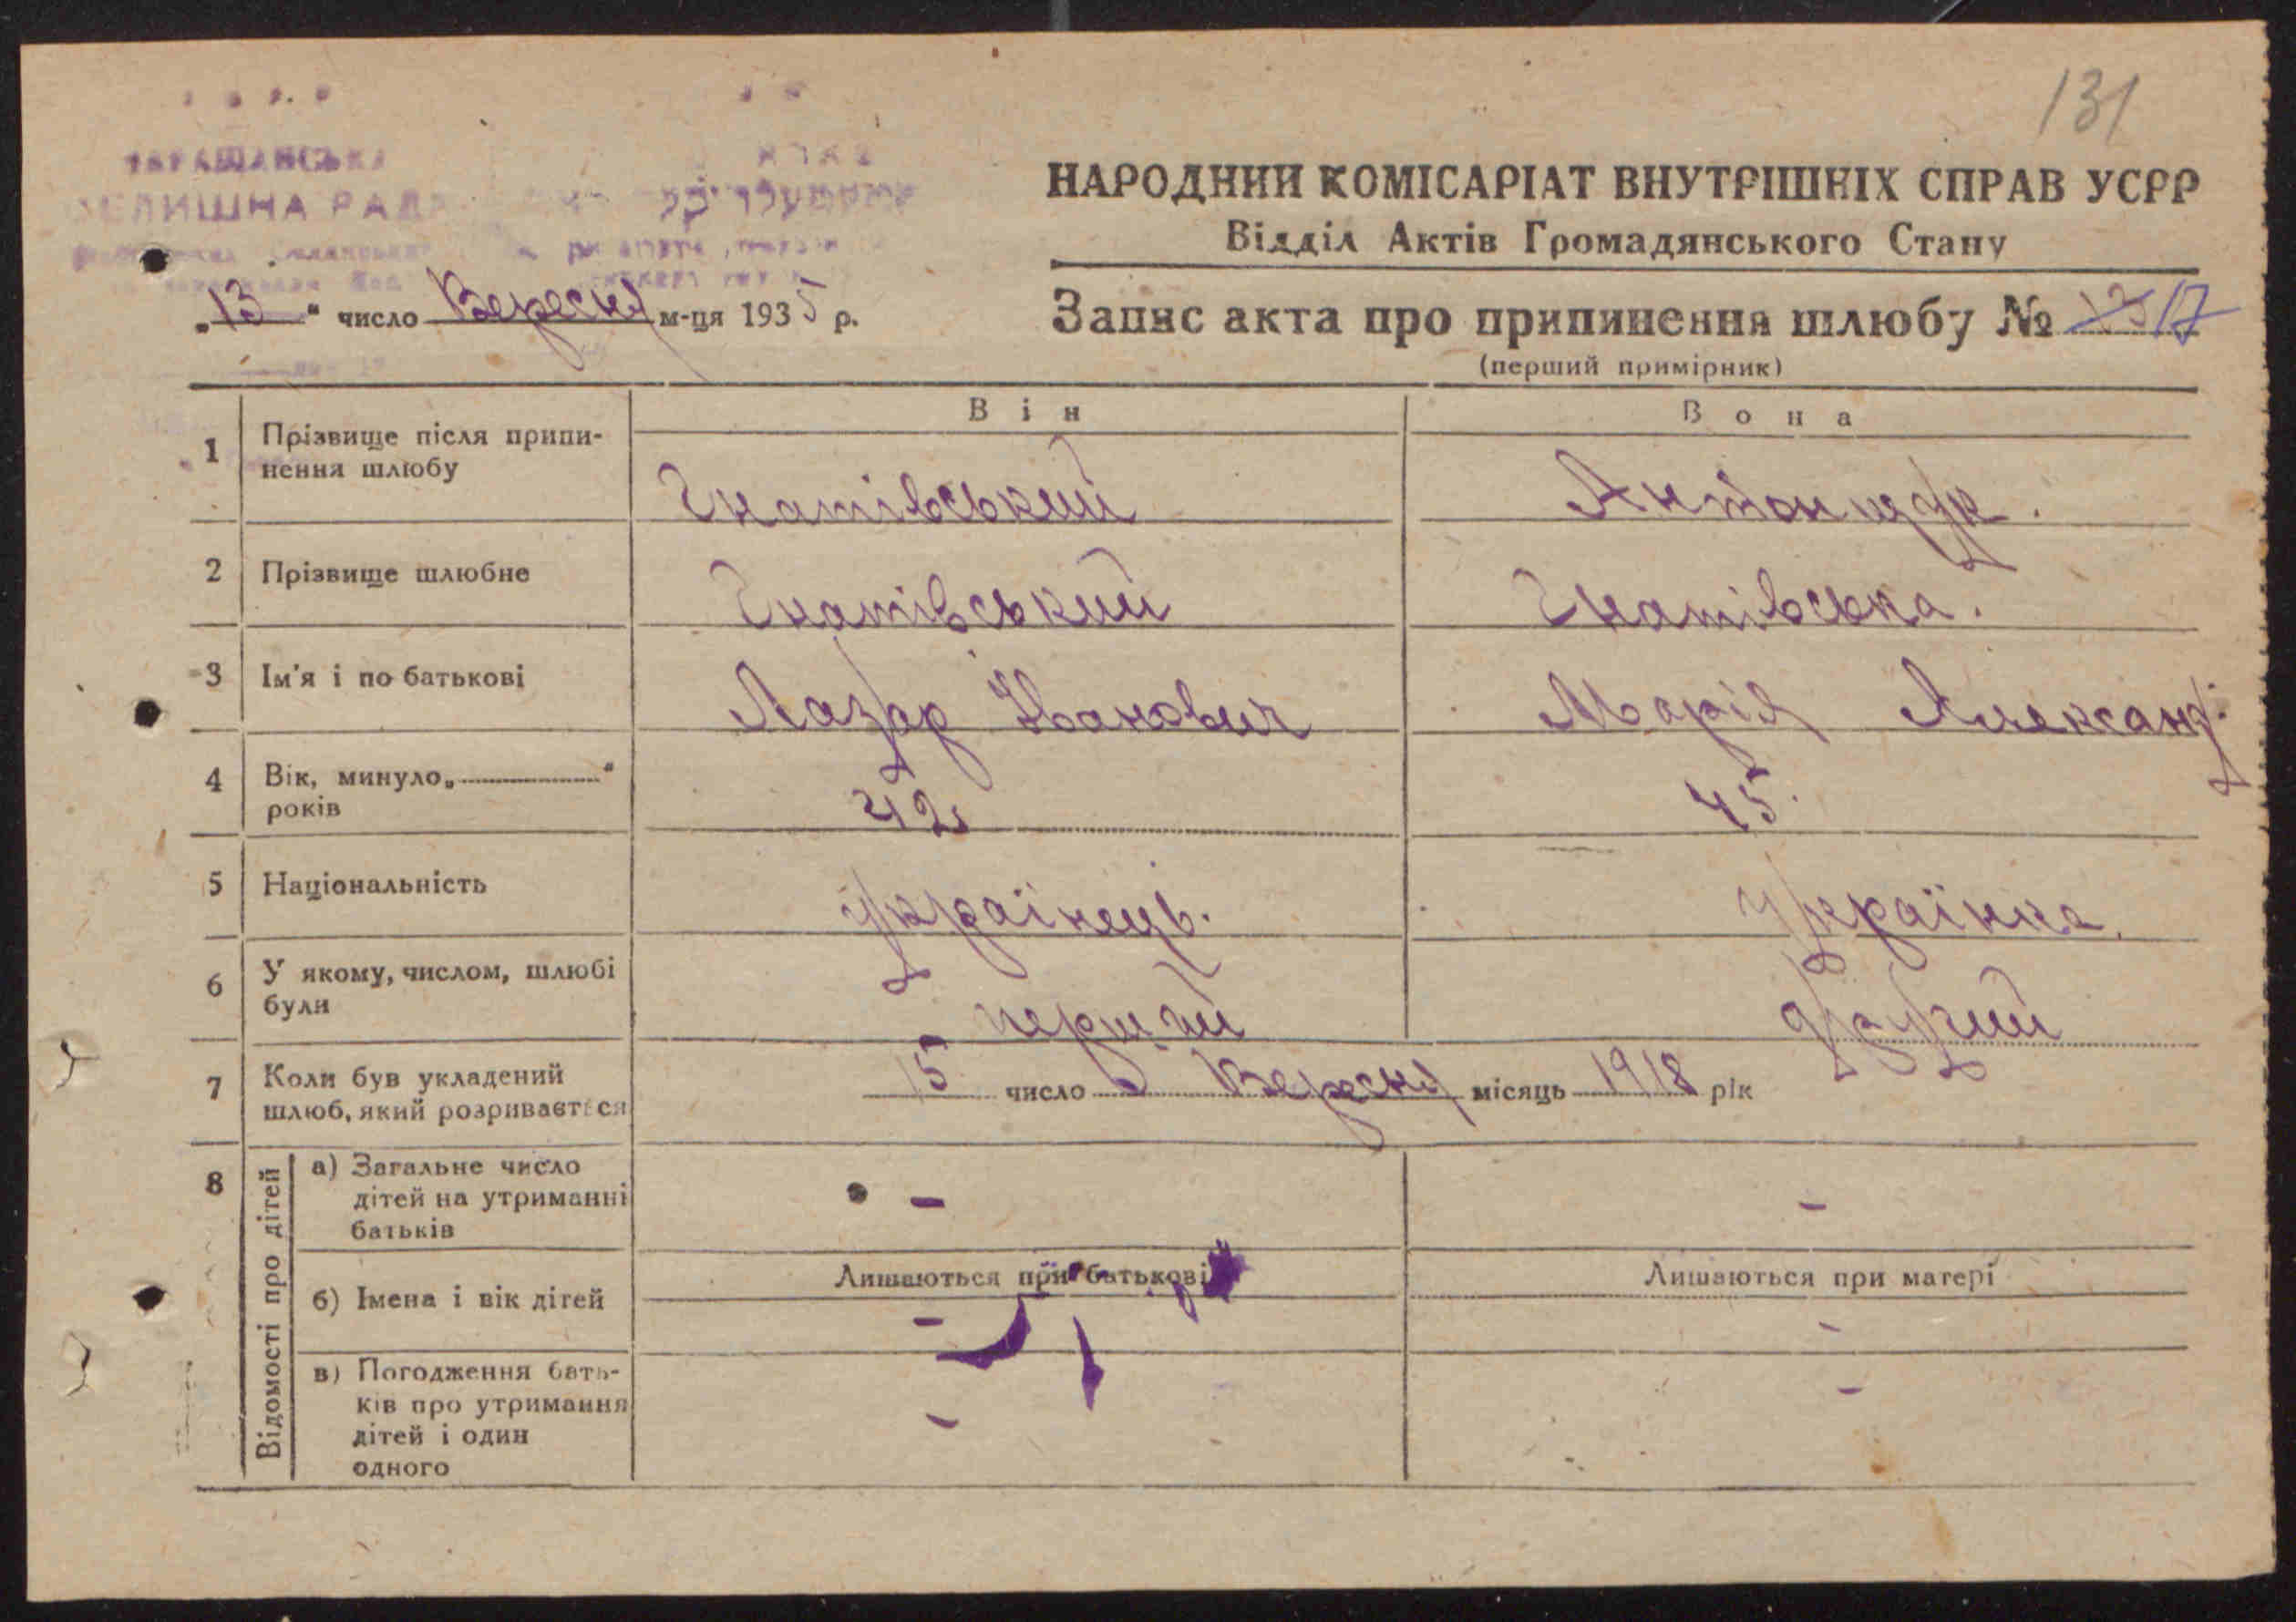 131
ТАРАЩАНСЬКА
СЕЛИШНА РАДА
НАРОДНИЙ КОМІСАРІАТ ВНУТРІШНІХ СПРАВ УСРР
Відділ Актів Громадянського Стану
„13“ число Вересня м-ця 1935 р.
Запис акта про припинення шлюбу № 17
(перший примірник)
Він Вона
1 Прізвище після припи-
нення шлюбу
Гнатівський Антонщук.
2 Прізвище шлюбне Гнатівський Гнатівська.
3 Ім'я і по батькові Лазар Іванович Марія Александ.
4 Вік, минуло „ “
років
42 45.
5 Національність українець. українка.
6 У якому, числом, шлюбі
були
перший другий
7 Коли був укладений
шлюб, який розривається
15 число Вересня місяць 1918 рік
8 Відомості про дітей
а) Загальне число
дітей на утриманні
батьків
- -
б) Імена і вік дітей
Лишаються при батькові Лишаються при матері
- -
в) Погодження бать-
ків про утримання
дітей і один
одного
- -